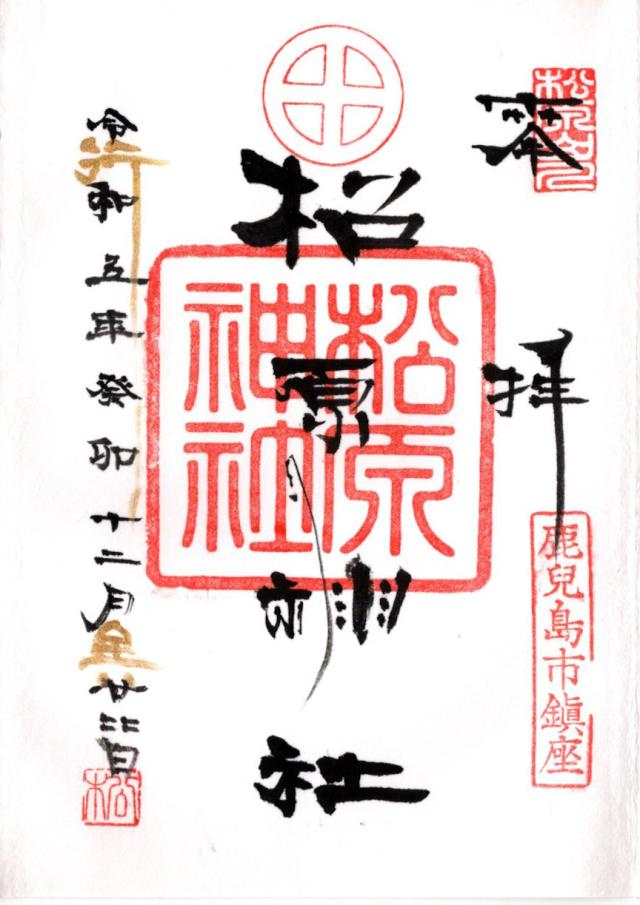 奉拝
松原
鹿兒島市鎮座
松原神社
松原神社
令和五年癸卯十二月廿二日
松